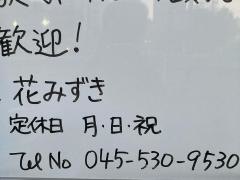 歓迎!
花みずき
定休日 月・日・祝
Tel No 045-530-9530